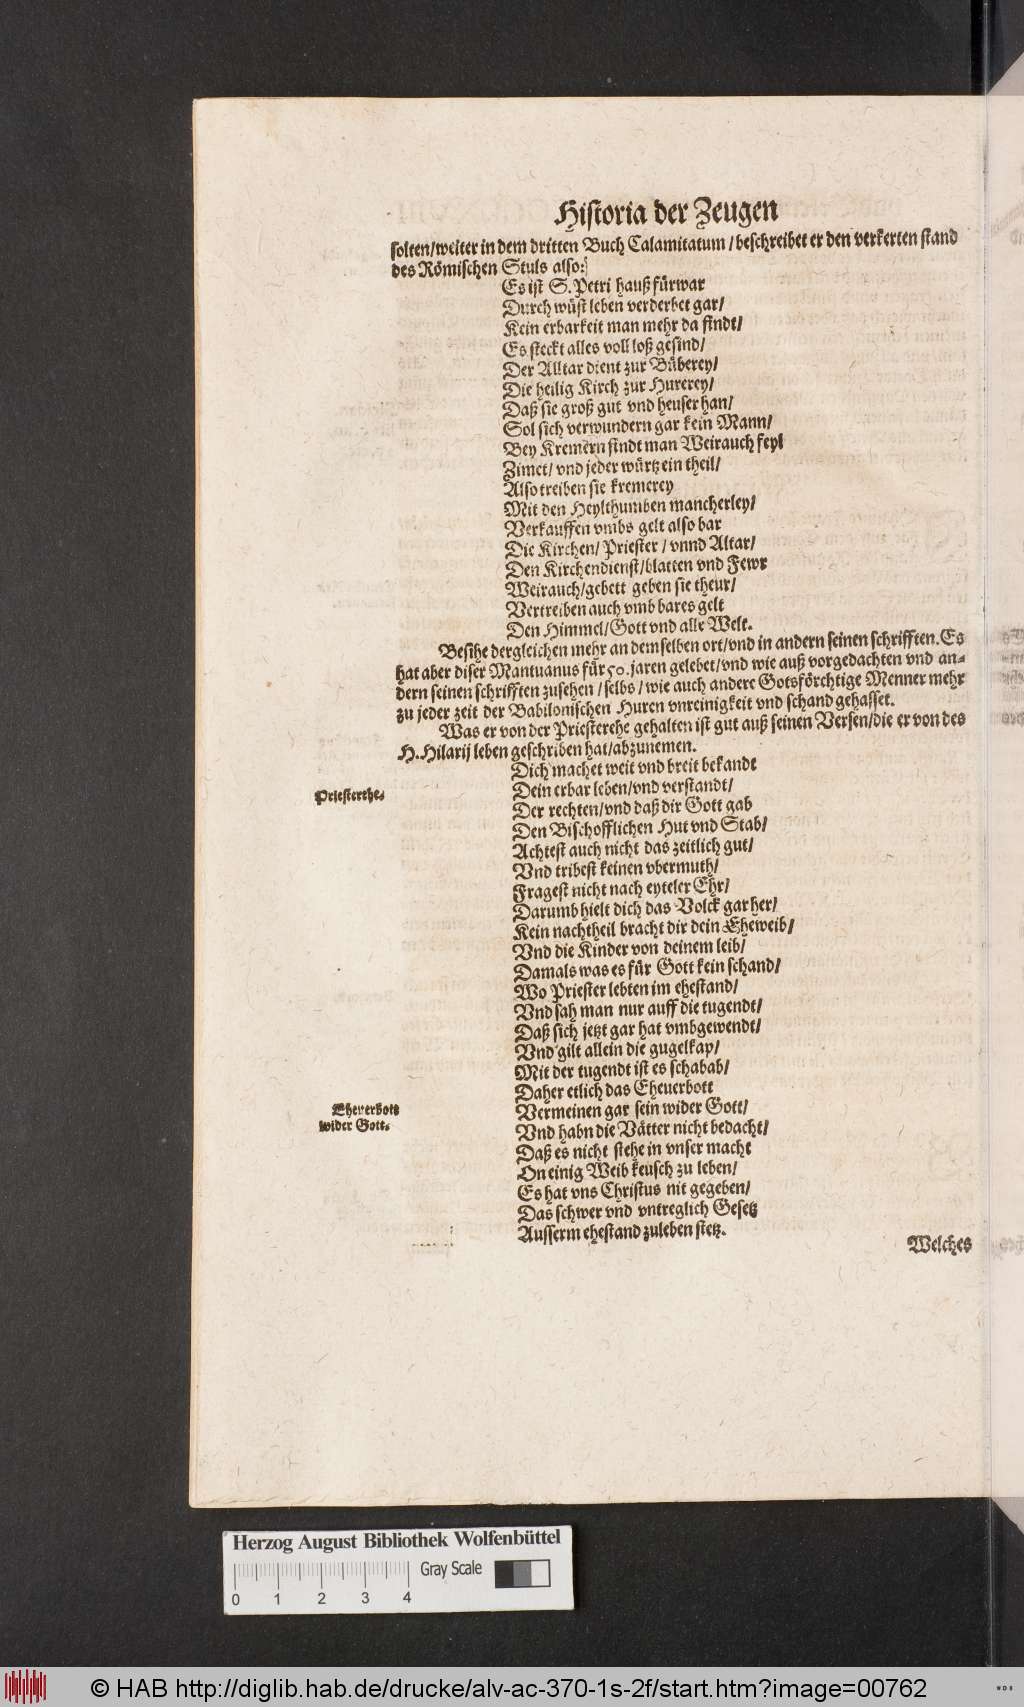 Historia der Zeugen
solten/weiter in dem dritten Buch Calamitatum/beschreibet er den verkerten stand
des Römischen Stuls also:
Es ist S. Petri hauß fürwar
Durch wüst leben verderbet gar/
Kein erbarkeit man mehr da findt/
Es steckt alles voll loß gesind/
Der Alltar dient zur Büberey/
Die heilig Kirch zur Hurerey/
Daß sie groß gut vnd heuser han/
Sol sich verwundern gar kein Mann/
Bey Kremern findt man Weirauch feyl
Zimet/ vnd jeder würtz ein theil/
Also treiben sie kremerey
Mit den Heylthumben mancherley/
Verkauffen vmbs gelt also bar
Die Kirchen/ Priester/ vnnd Altar/
Den Kirchendienst/blatten vnd Fewr
Weirauch/gebett geben sie theur/
Vertreiben auch vmb bares gelt
Den Himmel/Gott vnd alle Welt.
Besihe dergleichen mehr an demselben ort/vnd in andern seinen schrifften. Es
hat aber diser Mantuanus für 50. jaren gelebet/vnd wie auß vorgedachten vnd an-
dern seinen schrifften zusehen/selbs/wie auch andere Gotsförchtige Menner mehr
zu jeder zeit der Babilonischen Huren vnreinigkeit vnd schand gehasset.
Was er von der Priesterehe gehalten ist gut auß seinen Versen/die er von des
H. Hilarij leben geschriben hat/abzunemen.
Dich machet weit vnd breit bekandt
Priesterthe-
Dein erbar leben/vnd verstandt/
Der rechten/vnd daß dir Gott gab
Den Bischofflichen Hut vnd Stab/
Achtest auch nicht das zeitlich gut/
Vnd tribest keinen vbermuth/
Fragest nicht nach eyteler Ehr/
Darumb hielt dich das Volck gar her/
Kein nachtheil bracht dir dein Eheweib/
Vnd die Kinder von deinem leib/
Damals was es für Gott kein schand/
Wo Priester lebten im ehestand/
Vnd sah man nur auff die tugendt/
Daß sich jetzt gar hat vmbgewendt/
Vnd gilt allein die gugelkap/
Mit der tugendt ist es schabab/
Daher etlich das Eheuerbott
Eheverbott
wider Gott.
Vermeinen gar sein wider Gott/
Vnd habn die Vätter nicht bedacht/
Daß es nicht stehe in vnser macht
On einig Weib keusch zu leben/
Es hat vns Christus nit gegeben/
Das schwer vnd vntreglich Gesetz
Ausserm ehestand zuleben stetz.
Welches
Herzog August Bibliothek Wolfenbüttel
Gray Scale
0 1 2 3 4
© HAB http://diglib.hab.de/drucke/alv-ac-370-1s-2f/start.htm?image=00762